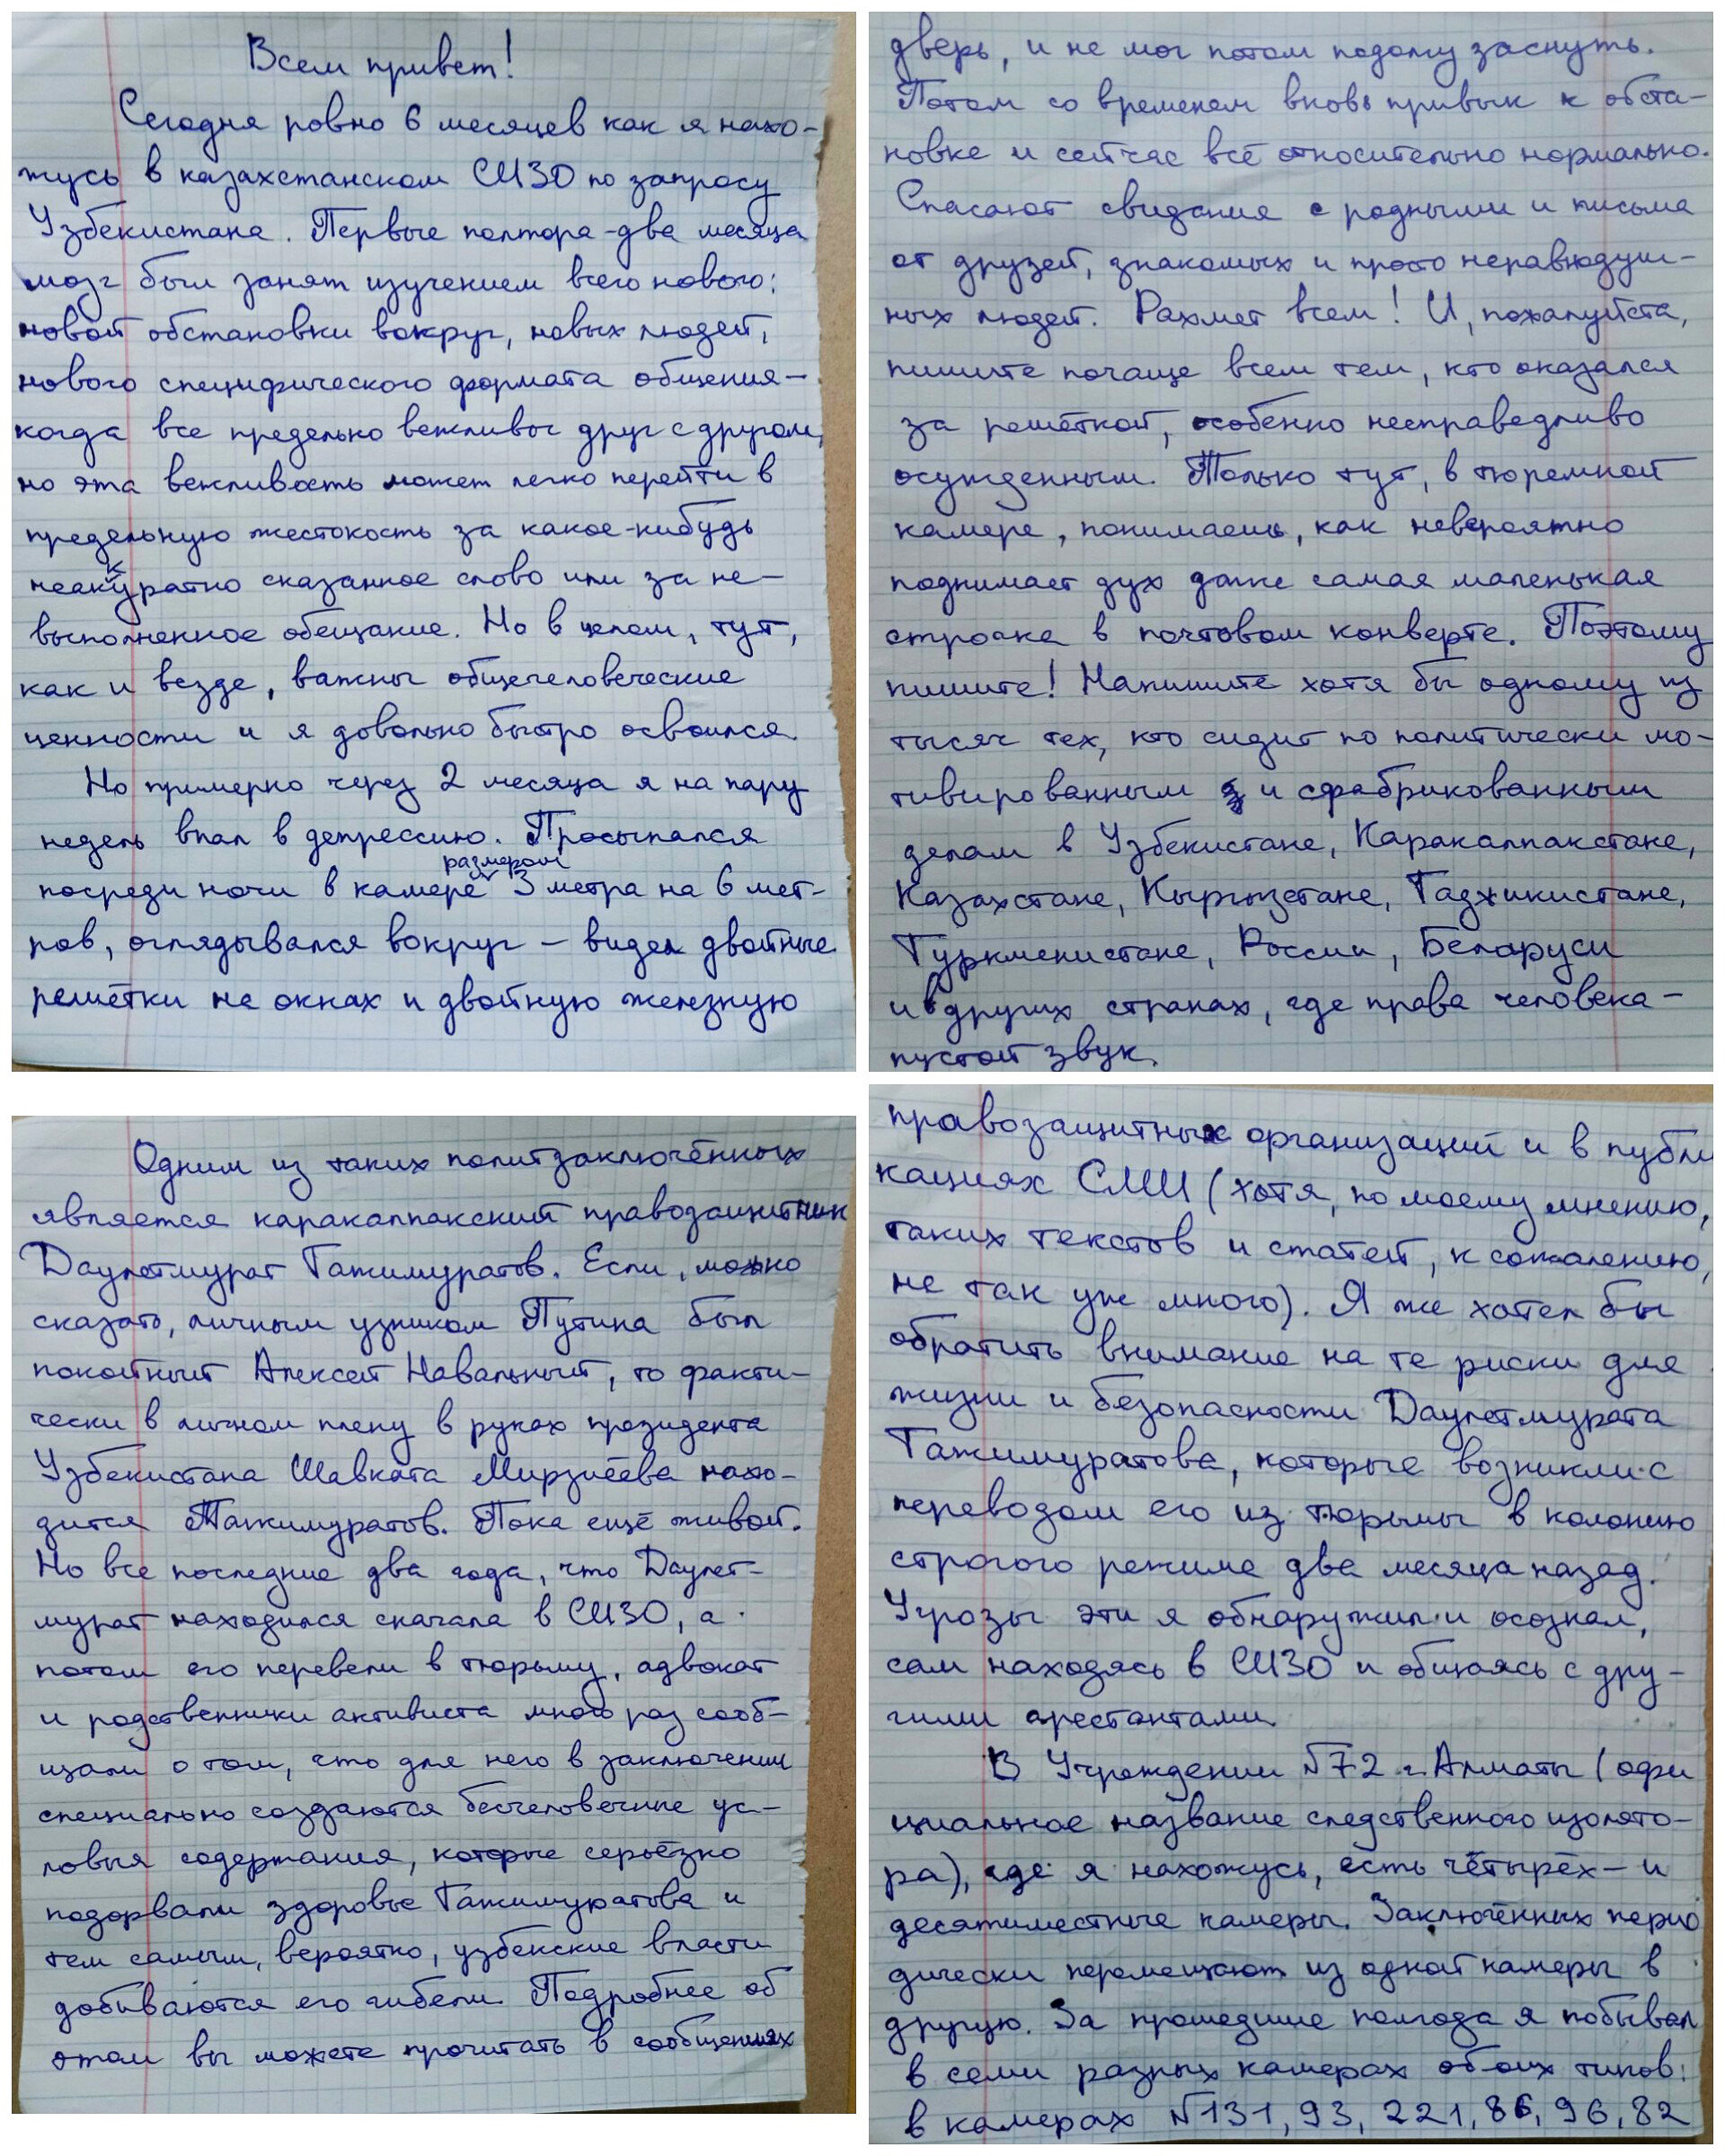 Всем привет!
Сегодня ровно 6 месяцев как я нахо-
жусь в казахстанском СИЗО по запросу
Узбекистана. Первые полтора-два месяца
мозг был занят изучением всего нового:
новой обстановки вокруг, новых людей,
нового специфического формата общения-
когда все предельно вежливы друг с другом,
но эта вежливость может легко перейти в
предельную жестокость за какое-нибудь
неаккуратно сказанное слово или за не-
выполненное обещание. Но в целом, тут,
как и везде, важны общечеловеческие
ценности и я довольно быстро освоился.
Но примерно через 2 месяца я на пару
недель впал в депрессию. Просыпался
посреди ночи в камере размером 3 метра на 6 мет-
ров, оглядывался вокруг - видел двойные
решётки на окнах и двойную железную
дверь, и не мог потом подолгу заснуть.
Потом со временем вновь привык к обста-
новке и сейчас всё относительно нормально.
Спасают свидания с родными и письма
от друзей, знакомых и просто неравнодуш-
ных людей. Рахмет всем! И, пожалуйста,
пишите почаще всем тем, кто оказался
за решёткой, особенно несправедливо
осужденным. Только тут, в тюремной
камере, понимаешь, как невероятно
поднимает дух даже самая маленькая
строчка в почтовом конверте. Поэтому
пишите! Напишите хотя бы одному из
тысяч тех, кто сидит по политически мо-
тивированным и сфабрикованным
делам в Узбекистане, Каракалпакстане,
Казахстане, Кыргызстане, Таджикистане,
Туркменистане, России, Беларуси
и в других странах, где права человека -
пустой звук.
Одним из таких политзаключённых
является каракалпакский правозащитник
Даулетмурат Тажимуратов. Если, можно
сказать, личным узником Путина был
покойный Алексей Навальный, то факти-
чески в личном плену в руках президента
Узбекистана Шавката Мирзиёева нахо-
дится Тажимуратов. Пока ещё живой.
Но все последние два года, что Даулет-
мурат находился сначала в СИЗО, а
потом его перевели в тюрьму, адвокат
и родственники активиста много раз сооб-
щали о том, что для него в заключении
специально создаются бесчеловечные ус-
ловия содержания, которые серьёзно
подорвали здоровье Тажимуратова и
тем самым, вероятно, узбекские власти
добиваются его гибели. Подробнее об
этом вы можете прочитать в сообщениях
правозащитных организаций и в публи
кациях СМИ (хотя, по моему мнению,
таких текстов и статей, к сожалению,
не так уж много). Я же хотел бы
обратить внимание на те риски для
жизни и безопасности Даулетмурата
Тажимуратова, которые возникли с
переводом его из тюрьмы в колонию
строгого режима два месяца назад.
Угрозы эти я обнаружил и осознал,
сам находясь в СИЗО и общаясь с дру-
гими арестантами.
В Учреждении №72 г. Алматы (офи
циальное название следственного изолято-
ра), где я нахожусь, есть чётырёх- и
десятиместные камеры. Заключённых перио
дически перемещают из одной камеры в
другую. За прошедшие полгода я побывал
в семи разных камерах обоих типов:
в камерах №131, 93, 221, 86, 96, 82